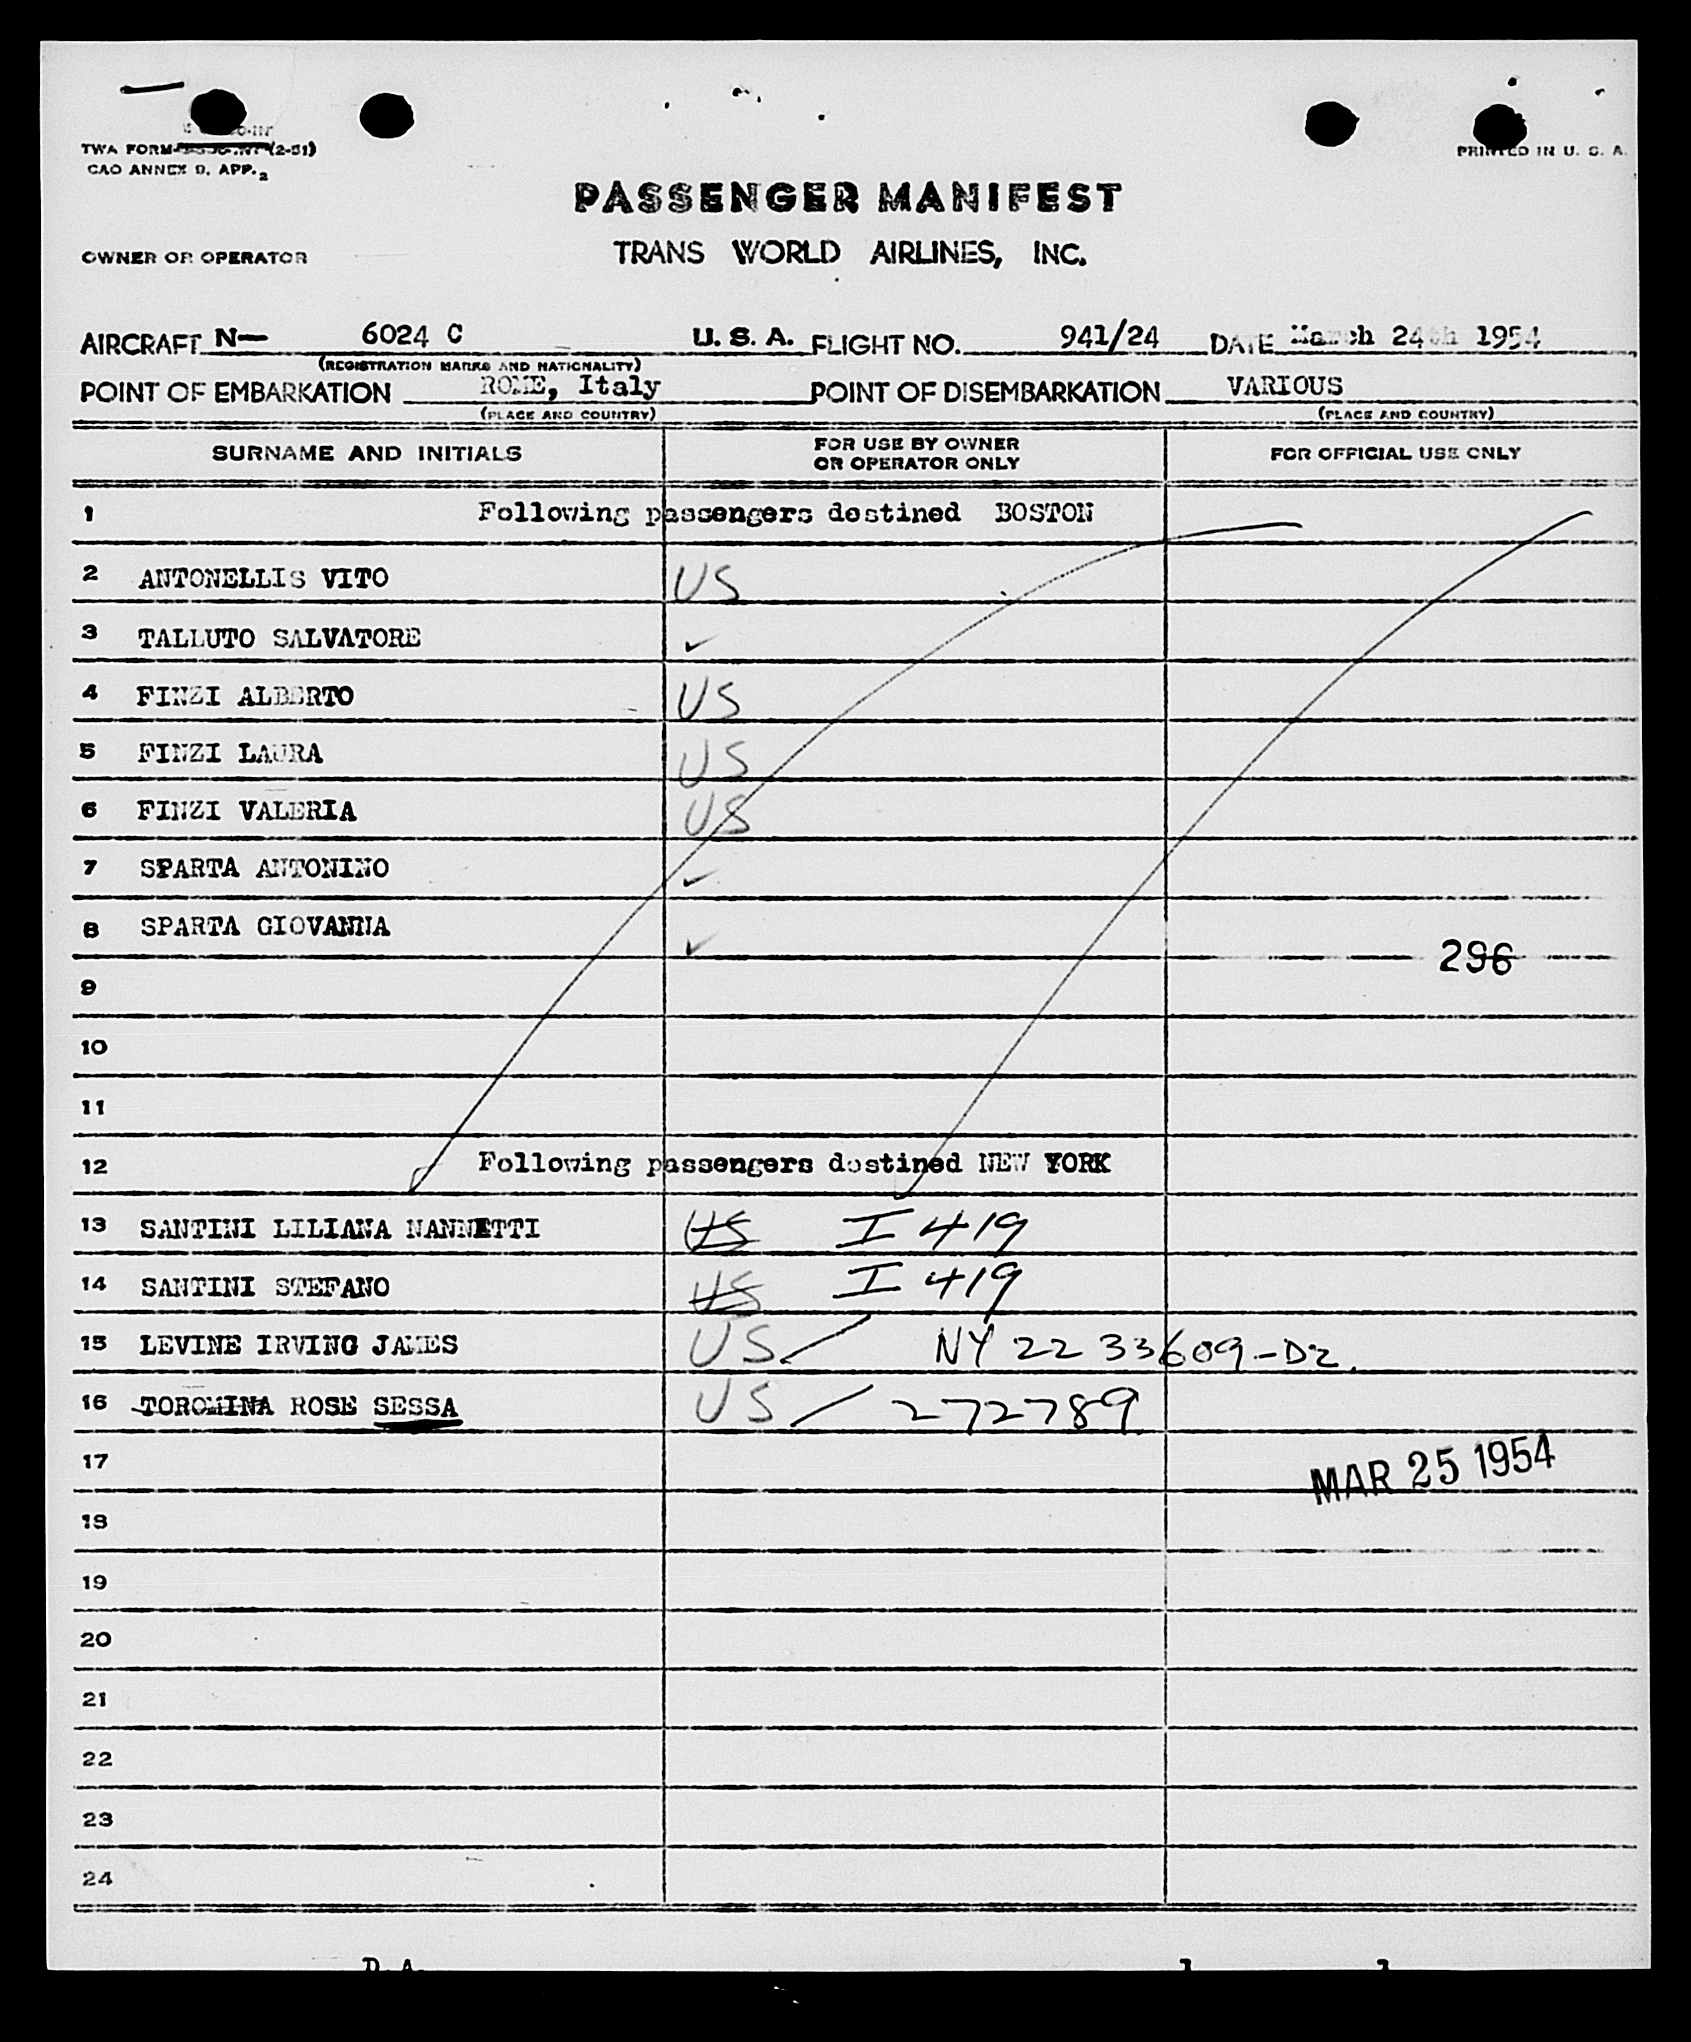 TWA FORM (2-51)
CAO ANNEX 9, APP. 2
PRINTED IN U. S. A.
PASSENGER MANIFEST
OWNER OR OPERATOR TRANS WORLD AIRLINES, INC.
AIRCRAFT N— 6024 C U. S. A. FLIGHT NO. 941/24 DATE March 24th 1954
(REGISTRATION MARKS AND NATIONALITY)
POINT OF EMBARKATION ROME, Italy POINT OF DISEMBARKATION VARIOUS
(PLACE AND COUNTRY) (PLACE AND COUNTRY)
SURNAME AND INITIALS FOR USE BY OWNER OR OPERATOR ONLY FOR OFFICIAL USE ONLY
1 Following passengers destined BOSTON
2 ANTONELLIS VITO US
3 TALLUTO SALVATORE ✓
4 FINZI ALBERTO US
5 FINZI LAURA US
6 FINZI VALERIA US
7 SPARTA ANTONINO ✓
8 SPARTA GIOVANNA ✓
296
9
10
11
12 Following passengers destined NEW YORK
13 SANTINI LILIANA NANNETTI US I 419
14 SANTINI STEFANO US I 419
15 LEVINE IRVING JAMES US / NY 22 33609-D2.
16 TOROMINA ROSE SESSA US / 272789
17
MAR 25 1954
18
19
20
21
22
23
24